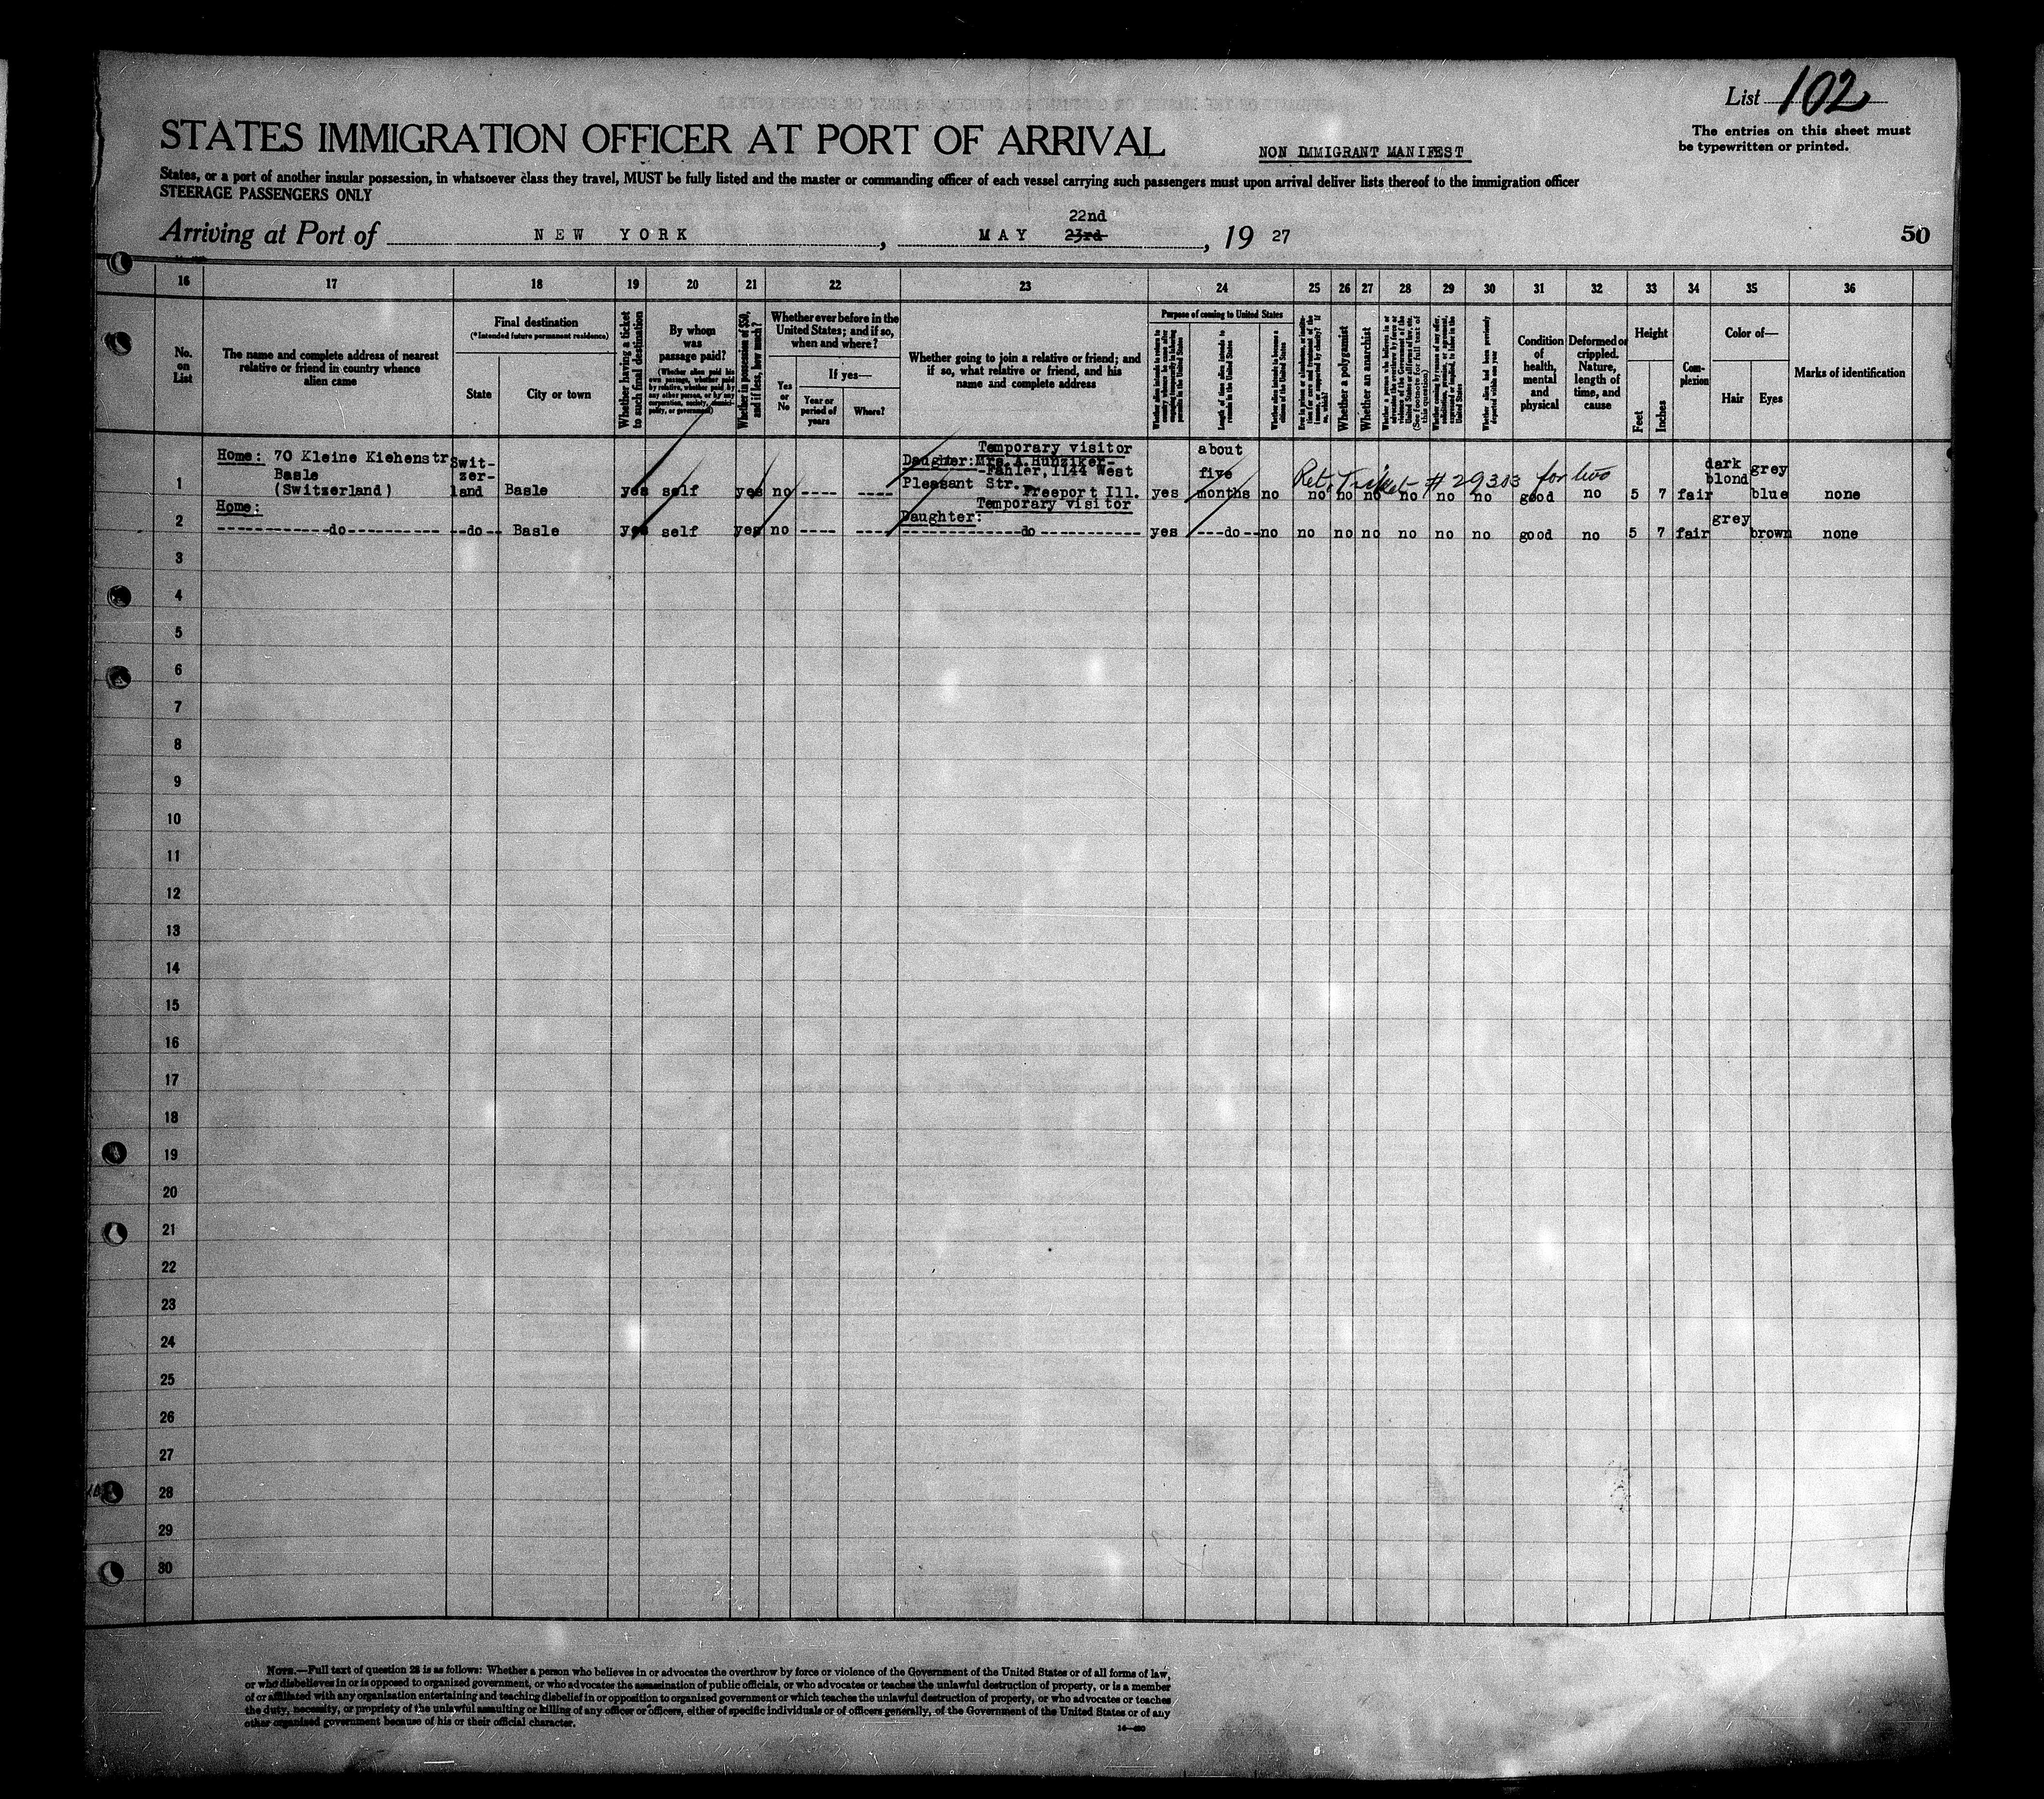 List 102
The entries on this sheet must
be typewritten or printed.
STATES IMMIGRATION OFFICER AT PORT OF ARRIVAL
NON IMMIGRANT MANIFEST
States, or a port of another insular possession, in whatsoever class they travel, MUST be fully listed and the master or commanding officer of each vessel carrying such passengers must upon arrival deliver lists thereof to the immigration officer
STEERAGE PASSENGERS ONLY
22nd
Arriving at Port of NEW YORK, MAY 23rd, 19 27
50
16 17 18 19 20 21 22 23 24 25 26 27 28 29 30 31 32 33 34 35 36
No. on List
The name and complete address of nearest relative or friend in country whence alien came
Final destination
(*Intended future permanent residence)
State
City or town
Whether having a ticket to such final destination
By whom was passage paid?
(Whether alien paid his own passage, whether paid by relative, whether paid by any other person, or by any corporation, society, municipality, or government)
Whether in possession of $50, and if less, how much?
Whether ever before in the United States; and if so, when and where?
Yes or No
If yes—
Year or period of years
Where?
Whether going to join a relative or friend; and if so, what relative or friend, and his name and complete address
Purpose of coming to United States
Length of time alien intends to remain in the United States
Whether alien intends to become a citizen of the United States
Whether a polygamist
Whether an anarchist
Whether alien had been previously deported within one year
Condition of health, mental and physical
Deformed or crippled. Nature, length of time, and cause
Height
Feet
Inches
Complexion
Color of—
Hair
Eyes
Marks of identification
Home: 70 Kleine Kiehenstr
Basle
(Switzerland)
Swit-
zer-
land
Basle
yes self yes no ---- ----
Temporary visitor
Daughter: Mrs. A. Hunziker-
-Fahler, 1144 West
Pleasant Str.
Freeport Ill.
yes
about
five
months
no
Ret. Ticket # 29303 for two
no no no no no no good no 5 7 fair
dark
blond
grey
blue
none
Home:
------------do---------- --do-- Basle yes self yes no ---- ----
Temporary visitor
Daughter:
--------------do------------ yes ---do-- no no no no no no no good no 5 7 fair
grey
brown
none
1
2
3
4
5
6
7
8
9
10
11
12
13
14
15
16
17
18
19
20
21
22
23
24
25
26
27
28
29
30
NOTE.—Full text of question 28 is as follows: Whether a person who believes in or advocates the overthrow by force or violence of the Government of the United States or of all forms of law,
or who disbelieves in or is opposed to organized government, or who advocates the assassination of public officials, or who advocates or teaches the unlawful destruction of property, or is a member
of or affiliated with any organization entertaining and teaching disbelief in or opposition to organized government or which teaches the unlawful destruction of property, or who advocates or teaches
the duty, necessity, or propriety of the unlawful assaulting or killing of any officer or officers, either of specific individuals or of officers generally, of the Government of the United States or of any
other organized government because of his or their official character.